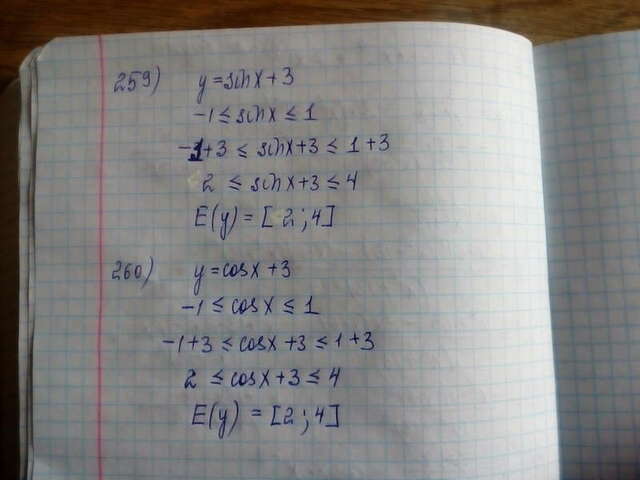 259) y=sinx+3
-1 ≤ sinx ≤ 1
-1+3 ≤ sinx+3 ≤ 1+3
2 ≤ sinx+3 ≤ 4
E(y) = [2;4]
260) y=cosx+3
-1 ≤ cosx ≤ 1
-1+3 ≤ cosx+3 ≤ 1+3
2 ≤ cosx+3 ≤ 4
E(y) = [2;4]